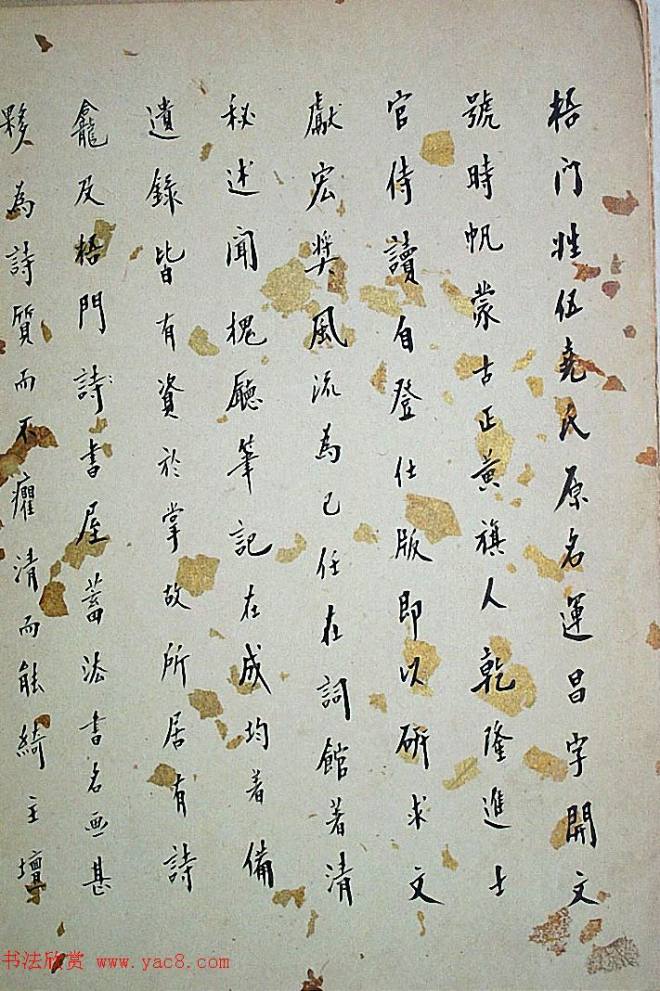 梧门姓伍堯氏原名運昌字開文
號時帆蒙古正黄旗人乾隆進士
官侍讀自登仕版即以研求文
獻宏奬風流為己任在詞館著清
秘述聞槐廳筆記在成均著備
遺錄皆有資於掌故所居有詩
龕及梧門詩書屋蓄法書名画甚
夥為詩質而不癯清而能綺主壇
书法欣赏 www.yac8.com